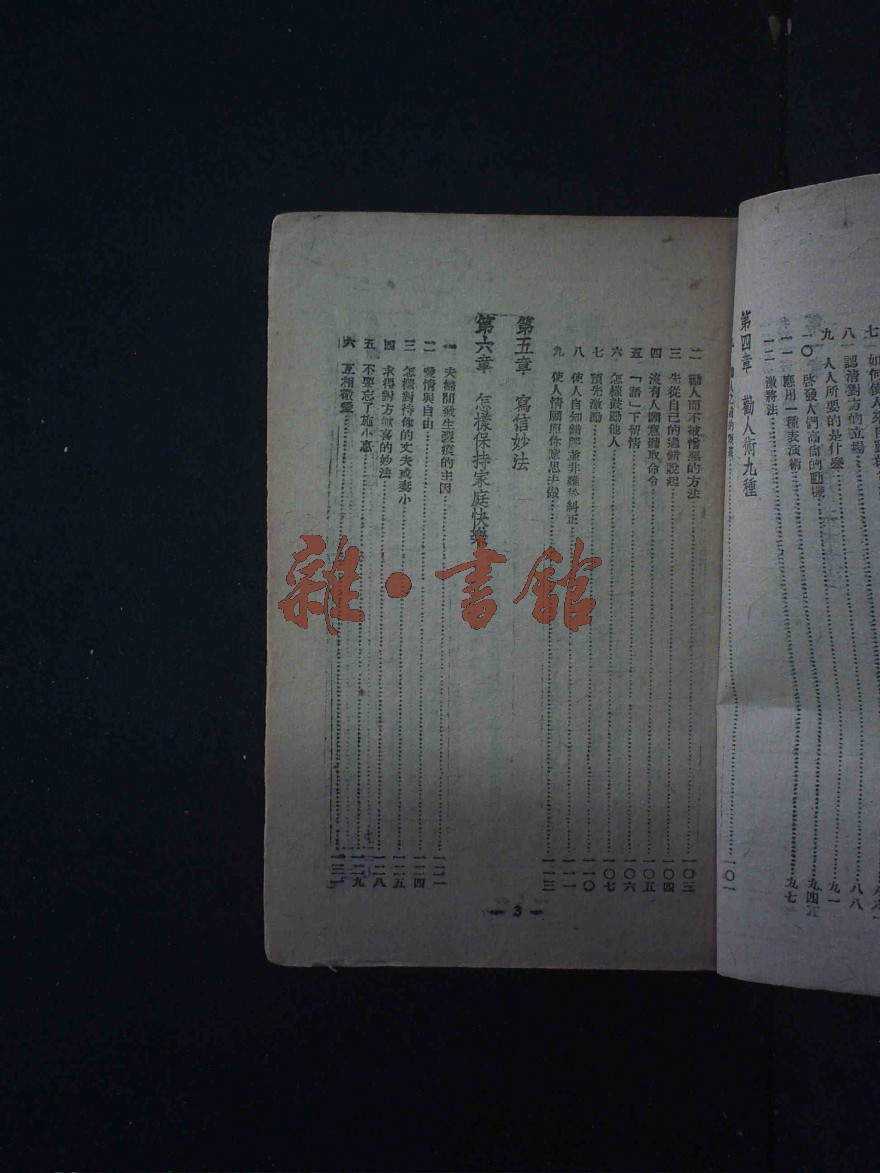 七 如何使人
八 認清對方的立場 八八
九 人人所要的是什麼 九一
一〇 啓發人們高尚的動機 九四
一一 應用一種表演術
一二 激將法 九七
第四章 勸人術九種
一〇一
二 勸人而不被憎惡的方法 一〇三
三 先從自己的過錯說起 一〇四
四 沒有人願意聽取命令 一〇五
五 「話」下留情 一〇六
六 怎樣鼓勵他人 一〇七
七 預先激勵 一一〇
八 使人自知錯郎並非難於糾正 一一一
九 使人情願照你意思去做 一一三
第五章 寫信妙法
第六章 怎樣保持家庭快樂
一 夫婦間發生裂痕的主因 一二一
二 愛情與自由 一二四
三 怎樣對待你的丈夫或妻小 一二五
四 求得對方歡喜的妙法 一二八
五 不要忘了施小惠 一二九
六 互相敬愛 一三一
— 3 —
雜·書館